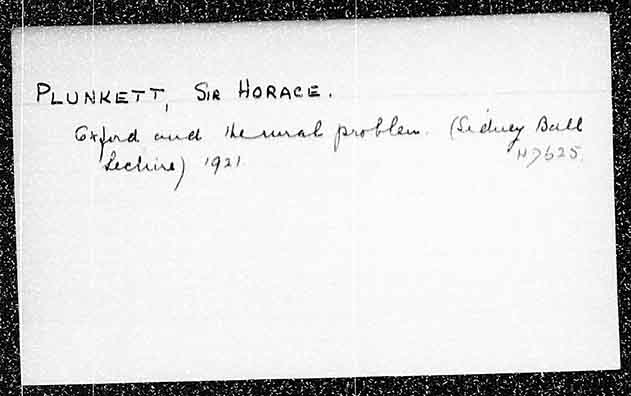 PLUNKETT, SIR HORACE.
Oxford and the rural problem. (Sidney Ball
Lecture) 1921
H7625